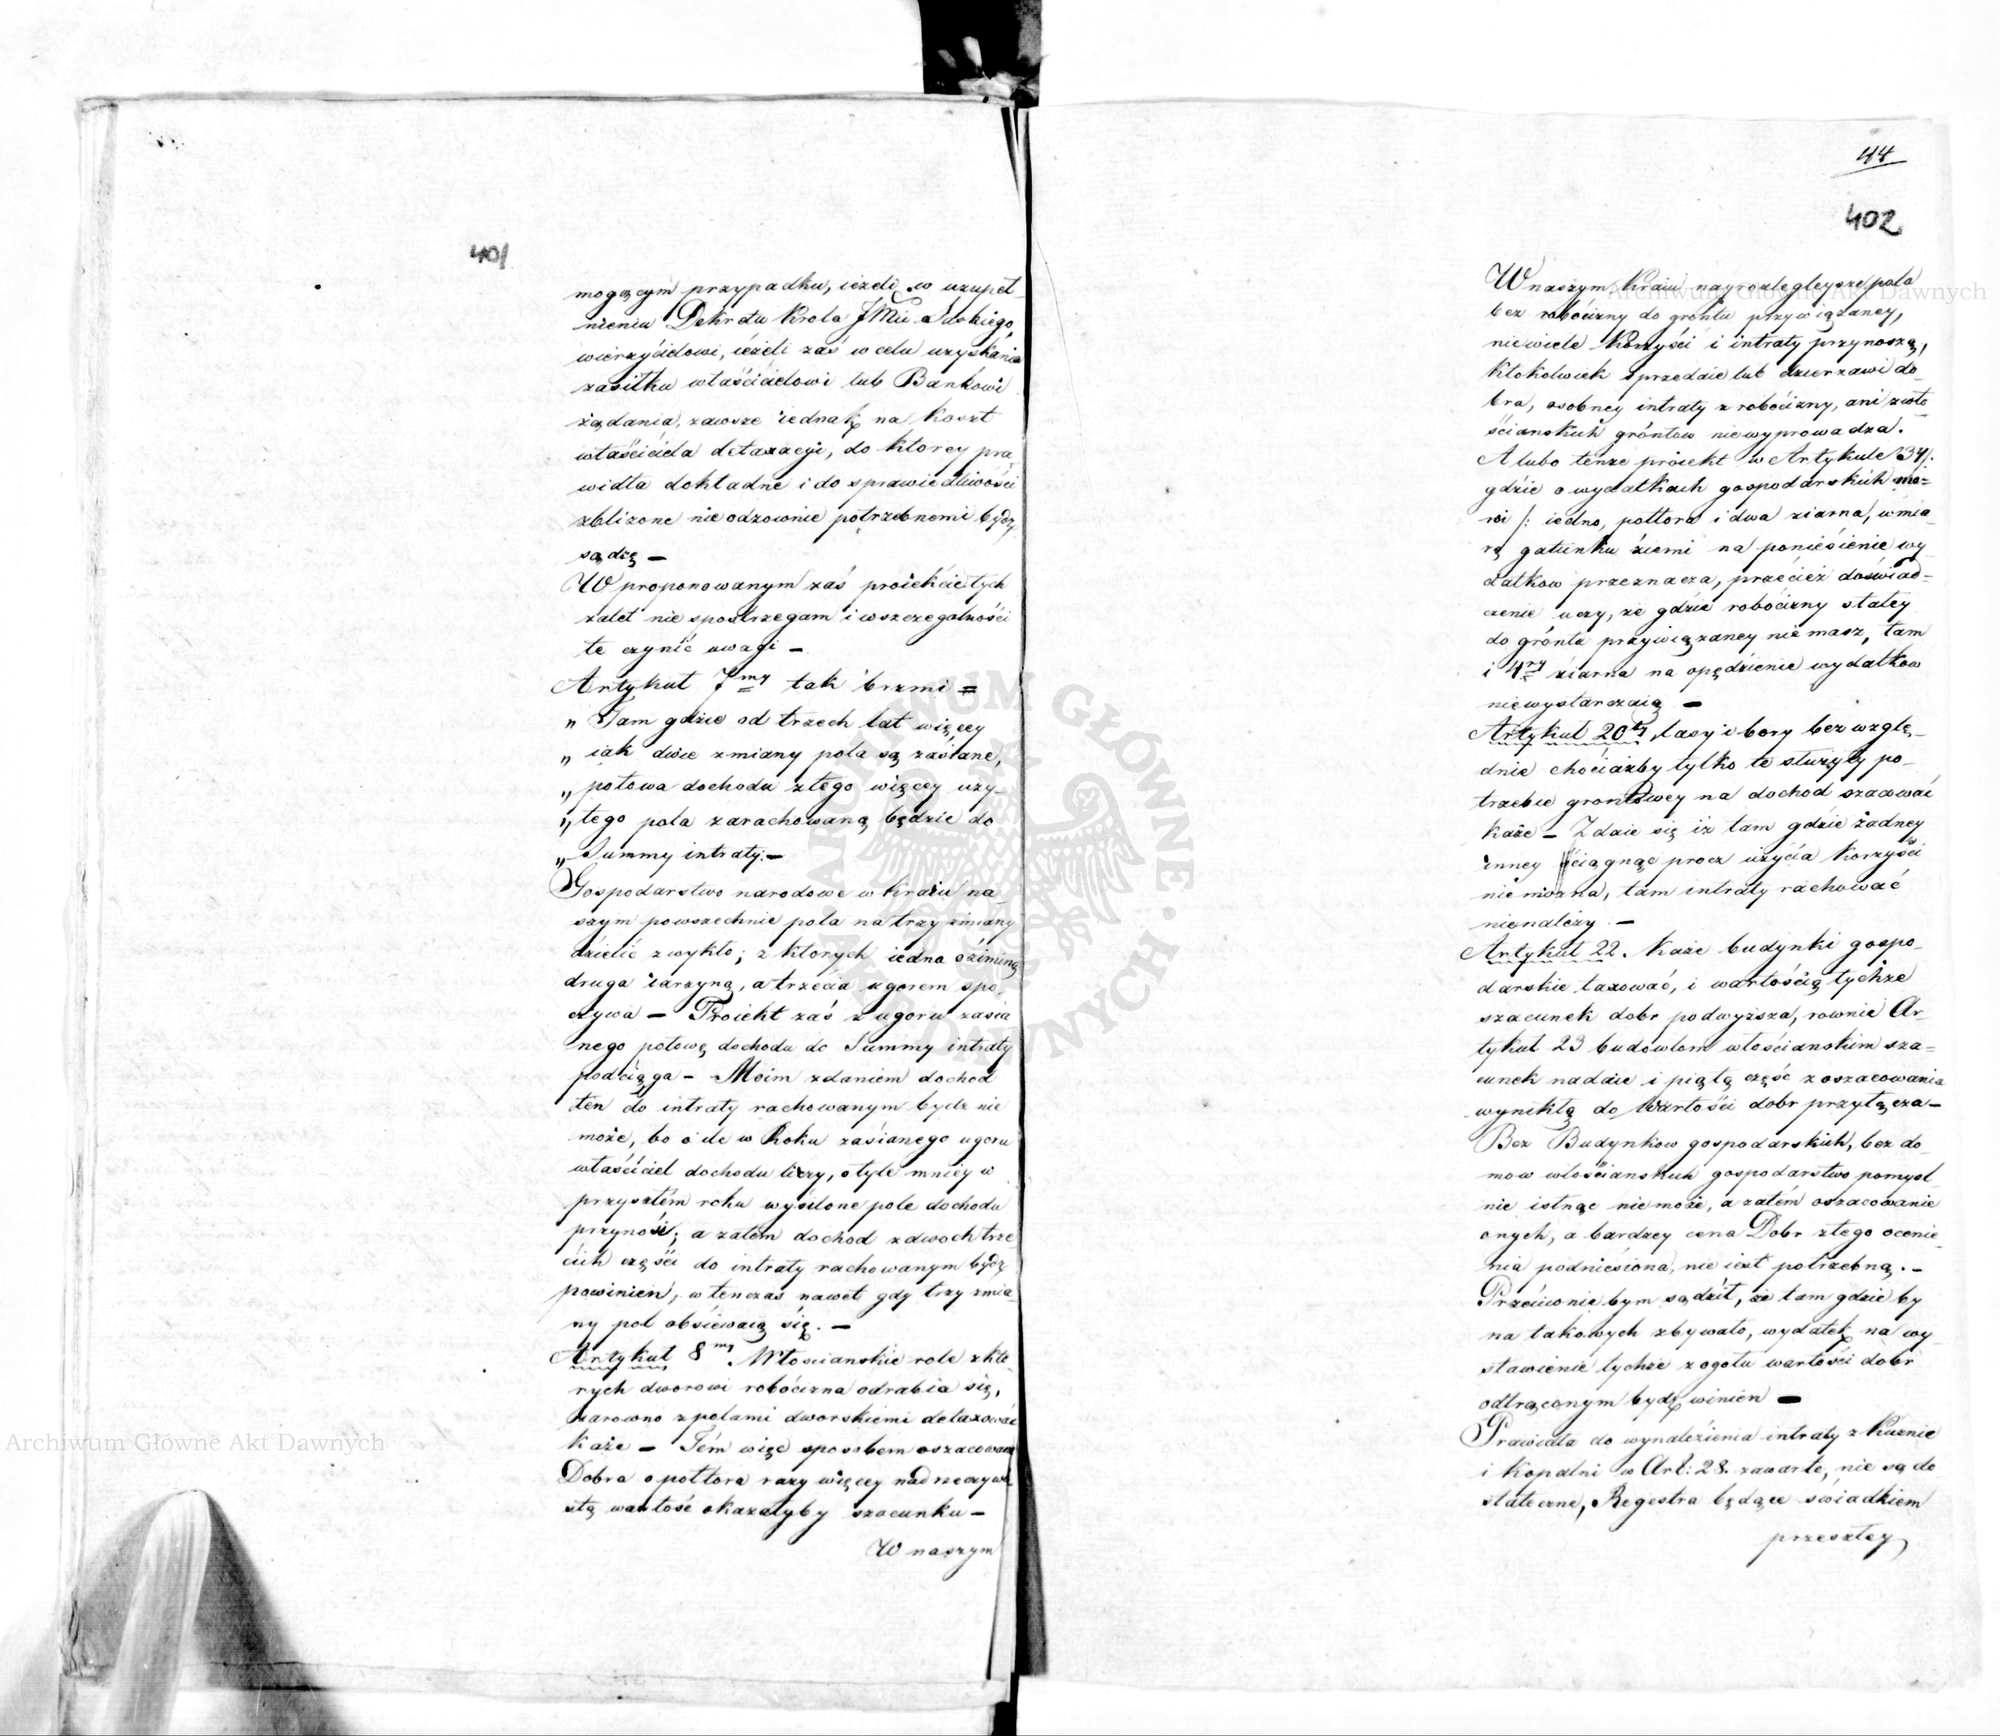 401
mogącym przypadku, ieżeli w uzupeł-
nieniu Dekretu Krola JMci Saskiego,
wierzycielowi, ieżeli zaś w celu uzyskania
zasiłku właścicielowi lub Bankowi
żądania, zawsze iednak na koszt
właściciela detaxacyi, do ktorey pra
widła dokładne i do sprawiedliwości
zbliżone nieodzownie potrzebnemi bydz
sądzę —
W proponowanym zaś proiekcie tych
zalet nie spostrzegam i wszczegolności
te czynić uwagi —
Artykuł 7my tak brzmi =
„ Tam gdzie od trzech lat więcey
„ iak dwie zmiany pola są zasiane,
„ połowa dochodu ztego więcey uzy-
„ tego pola zarachowaną będzie do
„ Summy intraty. —
Gospodarstwo narodowe w kraiu na-
szym powszechnie pola na trzy zmiany
dzielić zwykło; z ktorych iedna oziminą
druga iarzyną, a trzecia ugorem spo-
czywa — Proiekt zaś z ugoru zasia
nego połowę dochodu do Summy intraty
podciąga — Moim zdaniem dochod
ten do intraty rachowanym bydz nie
może, bo o ile w Roku zasianego ugoru
właściciel dochodu liczy, o tyle mniey w
przyszłém roku wysilone pole dochodu
przynosi; a zatém dochod zdwoch trze-
cich części do intraty rachowanym bydz
powinien, w tenczas nawet gdy trzy zmia-
ny pol obsiewaią się. —
Artykuł 8my. Włoscianskie role z kto-
rych dworowi robocizna odrabia się,
zarowno z polami dworskiemi detaxować
każe — Tém więc sposobem oszacowane
Dobra o połtora razy więcey nad rzeczywi
stą wartość okazałyby szacunku —
W naszym
44
402
W naszym Kraiu nayrozlegleysze pola
bez robocizny do gróntu przywiązaney,
niewiele korzyści i intraty przynoszą,
ktokolwiek sprzedaie lub dzierzawi do-
bra, osobney intraty z robocizny, ani z wło-
ścianskich gróntow niewyprowadza.
A lubo tenze proiekt w Artykule 34.
gdzie o wydatkach gospodarskich mo=
wi /: iedno, połtora i dwa ziarna, w mia-
rę gatunku ziemi na poniesienie wy
datkow przeznacza, przecież doświad-
czenie uczy, że gdzie robocizny stałey
do gróntu przywiązaney nie masz, tam
i 4ry ziarna na opędzienie wydatkow
niewystarczaią —
Artykuł 20ty, lasy i bory bezwzglę-
dnie chociażby tylko te służyły po-
trzebie grontowey na dochod szacować
każe — Zdaie się iż tam gdzie żadney
inney ściągnąc procz użycia korzyści
nie można, tam intraty rachować
nienależy —
Artykuł 22. każe budynki gospo-
darskie taxować, i wartością tychże
szacunek dobr podwyższa, rownie Ar-
tykuł 23 budowlom włoscianskim sza=
cunek nadaie i piątą część z oszacowania
wynikłą do Wartości dobr przyłącza —
Bez Budynkow gospodarskich, bez do-
mow włościanskich gospodarstwo pomysl-
nie istnąc niemoże, a zatém oszacowanie
onych, a bardzey cena Dobr ztego ocenie-
nia podniesiona, nie iest potrzebną. —
Przeciwnie bym sądził, że tam gdzie by
na takowych zbywało, wydatek na wy
stawienie tychże z ogołu wartości dobr
odtrąconym bydz winien —
Prawidła do wynalezienia intraty z Kuznic
i kopalni w Art: 28. zawarte, nie są do
stateczne, Regestra będące swiadkiem
przeszłey